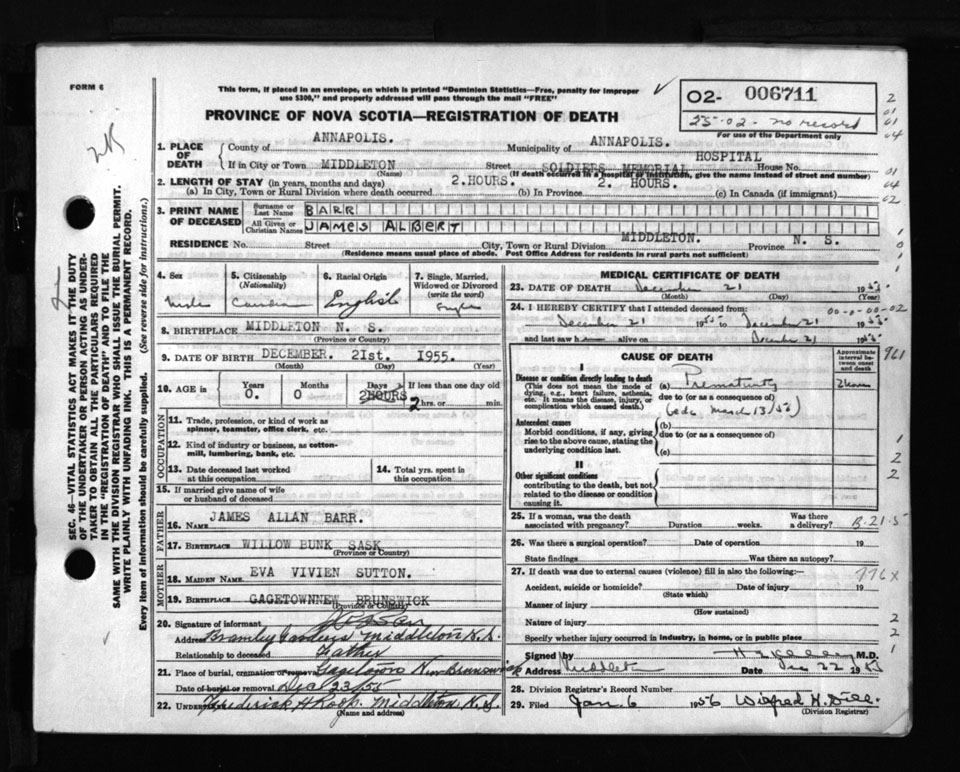 FORM 6
This form, if placed in an envelope, on which is printed "Dominion Statistics—Free, penalty for improper
use $300," and properly addressed will pass through the mail "FREE"
PROVINCE OF NOVA SCOTIA—REGISTRATION OF DEATH
02- 006711
25-02- no record
For use of the Department only
1. PLACE OF DEATH
County of ANNAPOLIS. Municipality of ANNAPOLIS.
If in City or Town MIDDLETON (Name) Street SOLDIERS MEMORIAL HOSPITAL House No.
(If death occurred in a hospital or institution, give the name instead of street and number)
2. LENGTH OF STAY (in years, months and days)
(a) In City, Town or Rural Division where death occurred 2.HOURS. (b) In Province 2. HOURS. (c) In Canada (if immigrant)
3. PRINT NAME OF DECEASED
Surname or Last Name BARR
All Given or Christian Names JAMES ALBERT
RESIDENCE No. Street City, Town or Rural Division MIDDLETON. Province N. S.
(Residence means usual place of abode. Post Office Address for residents in rural parts not sufficient)
4. Sex
Male
5. Citizenship (Nationality)
6. Racial Origin
English
7. Single, Married, Widowed or Divorced (write the word)
Single
8. BIRTHPLACE MIDDLETON N. S.
(Province or Country)
9. DATE OF BIRTH DECEMBER. 21st. 1955.
(Month) (Day) (Year)
10. AGE Years 0. Months 0 Days 2HOURS If less than one day old 2 hrs. or min.
OCCUPATION
11. Trade, profession, or kind of work as
spinner, teamster, office clerk, etc.
12. Kind of industry or business, as cotton-
mill, lumbering, bank, etc.
13. Date deceased last worked
at this occupation
14. Total yrs. spent in
this occupation
15. If married give name of wife
or husband of deceased
FATHER
16. NAME JAMES ALLAN BARR.
17. BIRTHPLACE WILLOW BUNK SASK
(Province or Country)
MOTHER
18. MAIDEN NAME EVA VIVIEN SUTTON.
19. BIRTHPLACE GAGETOWNNEW BRUNSWICK
(Province or Country)
20. Signature of informant
Address Middleton N.S.
Relationship to deceased Father
21. Place of burial, cremation or removal Gagetown New Brunswick
Date of burial or removal Dec 23/55
22. UNDERTAKER Frederick H Roop. Middleton, N.S.
(Name and address)
MEDICAL CERTIFICATE OF DEATH
23. DATE OF DEATH December 21 1955
(Month) (Day) (Year)
24. I HEREBY CERTIFY that I attended deceased from: 00-0-00-02
December 21 1955 to December 21 1955
and last saw h alive on December 21 1955
CAUSE OF DEATH
Approximate interval between onset and death
961
I
Disease or condition directly leading to death
(This does not mean the mode of
dying, e.g., heart failure, asthenia,
etc. It means the disease, injury, or
complication which caused death.)
(a) Prematurity 2 hours
due to (or as a consequence of)
(edc March 13/56)
Antecedent causes
Morbid conditions, if any, giving
rise to the above cause, stating the
underlying condition last.
(b)
due to (or as a consequence of)
(c)
II
Other significant conditions
contributing to the death, but not
related to the disease or condition
causing it.
25. If a woman, was the death
associated with pregnancy? Duration weeks. Was there a delivery?
B-21-5
26. Was there a surgical operation? Date of operation 19
State findings Was there an autopsy?
27. If death was due to external causes (violence) fill in also the following:
776X
Accident, suicide or homicide? (State which) Date of injury 19
Manner of injury
(How sustained)
Nature of injury
Specify whether injury occurred in industry, in home, or in public place
Signed by M.D.
Address Middleton Date Dec 22 1955
28. Division Registrar's Record Number
29. Filed Jan. 6 1956 Wilfred H. Dill.
(Division Registrar)
SEC. 46—VITAL STATISTICS ACT MAKES IT THE DUTY
OF THE UNDERTAKER OR PERSON ACTING AS UNDER-
TAKER TO OBTAIN ALL THE PARTICULARS REQUIRED
IN THE "REGISTRATION OF DEATH" AND TO FILE THE
SAME WITH THE DIVISION REGISTRAR WHO SHALL ISSUE THE BURIAL PERMIT.
WRITE PLAINLY WITH UNFADING INK. THIS IS A PERMANENT RECORD.
Every item of information should be carefully supplied. (See reverse side for instructions.)